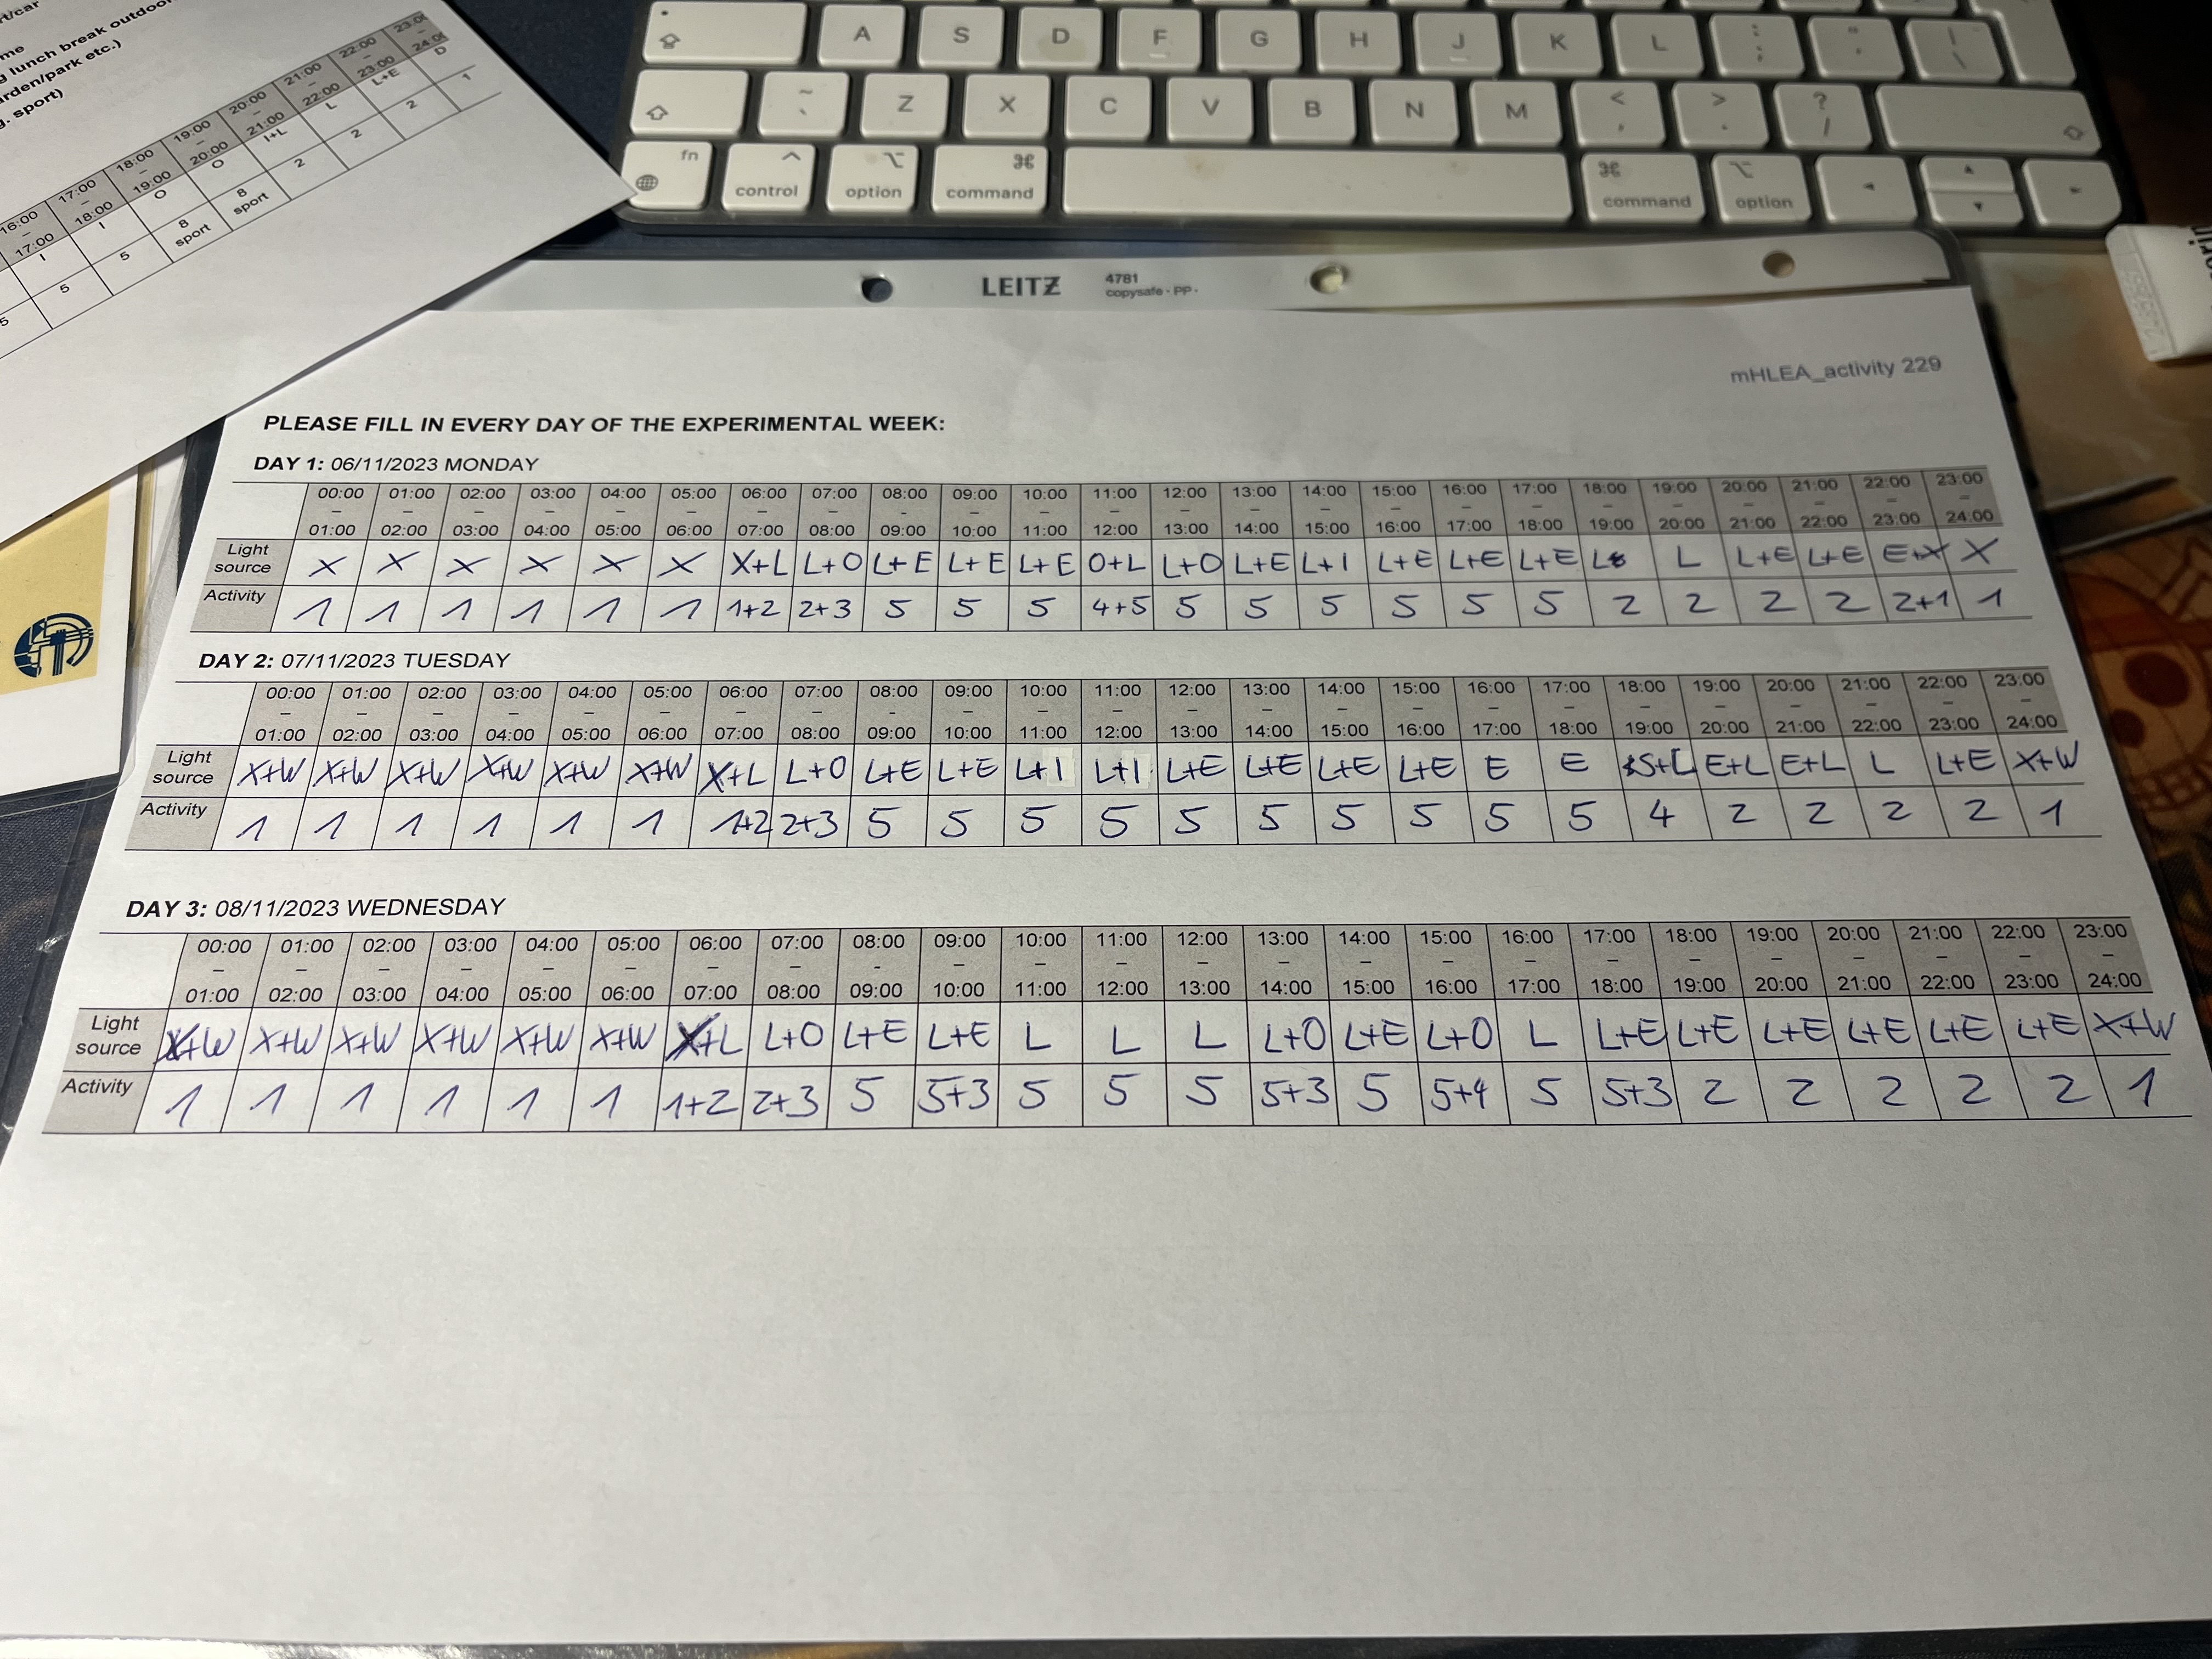 rt/car
me
g lunch break outdoor
arden/park etc.)
g. sport)
16:00 – 17:00 17:00 – 18:00 18:00 – 19:00 19:00 – 20:00 20:00 – 21:00 21:00 – 22:00 22:00 – 23:00 23:00 – 24:00
I I O O I+L L L+E D
5 5 5 8 sport 8 sport 2 2 2 1
A S D F G H J K L : ; " ' | \
~ ` Z X C V B N M < , > . ? /
fn control option ⌘ command ⌘ command option
LEITZ 4781
copysafe - PP -
mHLEA_activity 229
PLEASE FILL IN EVERY DAY OF THE EXPERIMENTAL WEEK:
DAY 1: 06/11/2023 MONDAY
00:00 01:00 02:00 03:00 04:00 05:00 06:00 07:00 08:00 09:00 10:00 11:00 12:00 13:00 14:00 15:00 16:00 17:00 18:00 19:00 20:00 21:00 22:00 23:00
– – – – – – – – - – – – – – – – – – – – – – – –
01:00 02:00 03:00 04:00 05:00 06:00 07:00 08:00 09:00 10:00 11:00 12:00 13:00 14:00 15:00 16:00 17:00 18:00 19:00 20:00 21:00 22:00 23:00 24:00
Light source X X X X X X X+L L+O L+E L+E L+E O+L L+O L+E L+I L+E L+E L+E L L L+E L+E E+X X
Activity 1 1 1 1 1 1 1+2 2+3 5 5 5 4+5 5 5 5 5 5 5 2 2 2 2 2+1 1
DAY 2: 07/11/2023 TUESDAY
00:00 01:00 02:00 03:00 04:00 05:00 06:00 07:00 08:00 09:00 10:00 11:00 12:00 13:00 14:00 15:00 16:00 17:00 18:00 19:00 20:00 21:00 22:00 23:00
– – – – – – – – - – – – – – – – – – – – – – – –
01:00 02:00 03:00 04:00 05:00 06:00 07:00 08:00 09:00 10:00 11:00 12:00 13:00 14:00 15:00 16:00 17:00 18:00 19:00 20:00 21:00 22:00 23:00 24:00
Light source X+W X+W X+W X+W X+W X+W X+L L+O L+E L+E L+I L+I L+E L+E L+E L+E E E S+L E+L E+L L L+E X+W
Activity 1 1 1 1 1 1 1+2 2+3 5 5 5 5 5 5 5 5 5 5 4 2 2 2 2 1
DAY 3: 08/11/2023 WEDNESDAY
00:00 01:00 02:00 03:00 04:00 05:00 06:00 07:00 08:00 09:00 10:00 11:00 12:00 13:00 14:00 15:00 16:00 17:00 18:00 19:00 20:00 21:00 22:00 23:00
– – – – – – – – - – – – – – – – – – – – – – – –
01:00 02:00 03:00 04:00 05:00 06:00 07:00 08:00 09:00 10:00 11:00 12:00 13:00 14:00 15:00 16:00 17:00 18:00 19:00 20:00 21:00 22:00 23:00 24:00
Light source X+W X+W X+W X+W X+W X+W X+L L+O L+E L+E L L L L+O L+E L+O L L+E L+E L+E L+E L+E L+E X+W
Activity 1 1 1 1 1 1 1+2 2+3 5 5+3 5 5 5 5+3 5 5+4 5 5+3 2 2 2 2 2 1